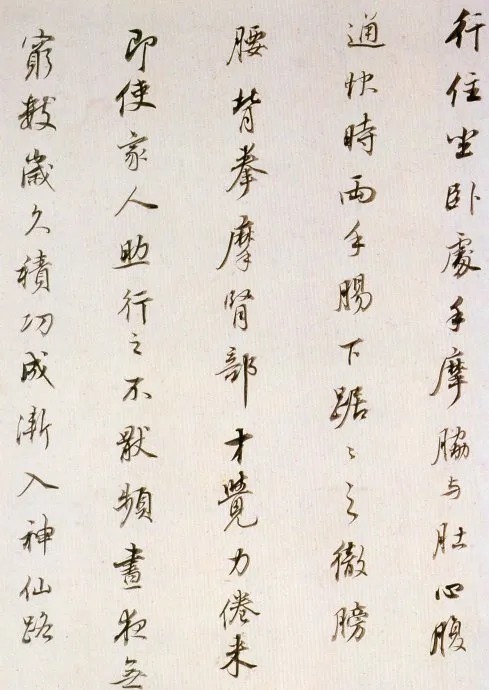 行住坐卧處手摩脇与肚心腹
通快時兩手腸下踞踞之徹膀
腰背拳摩腎部才覺力倦来
即使家人助行之不厭頻晝夜無
窮数歲久積功成漸入神仙路